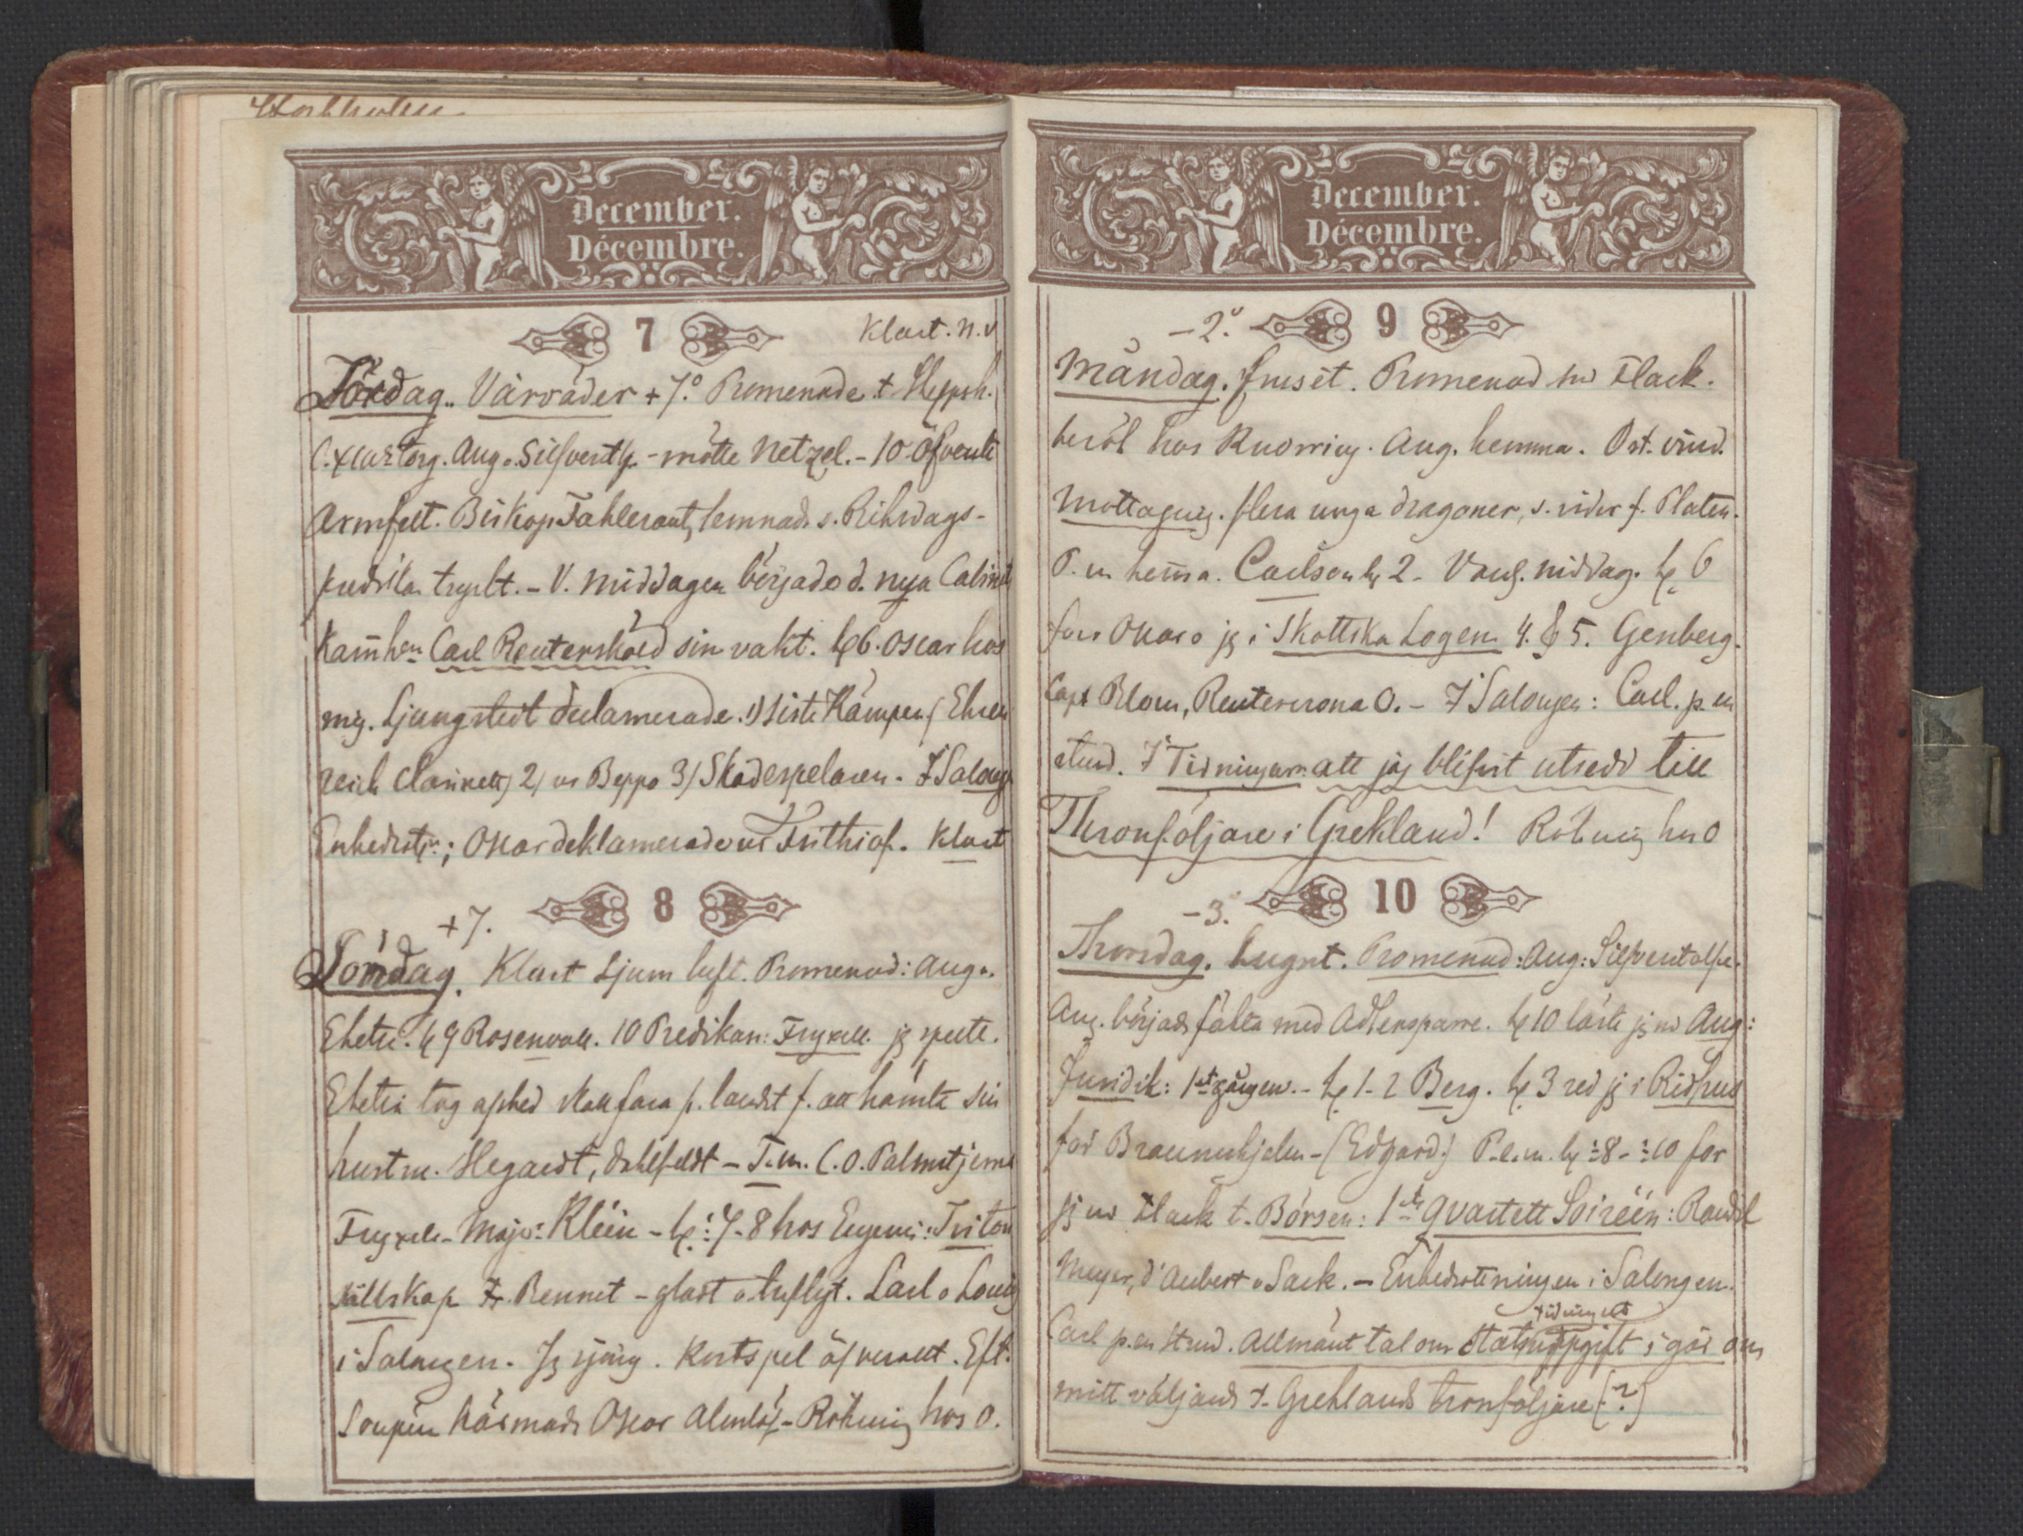 Stockholm
December.
Décembre.
7 Klart. N.v
Lördag. Vårväder + 7.° Promenade t Skeppsh.
C. XIIIs torg. Aug. o. Silfverst. - mötte Netzel. - 10 Öfverste
Armfelt. Biskop Fahlcrantz lemnade s. Riksdags-
predikan tryckt. - V. middagen började d. nya Cabinets
Kam̄hen Carl Reuterskiöld sin vakt. kl 6. Oscar hos
mig. Ljungstedt declamerade. 1) siste Kämpen (Ehren
reich clarinett) 2) ur Beppo 3) Skådespelaren. I Salong
Enkedrotn.; Oscar deklamerade ur Frithiof. Klart
+7. 8
Söndag. Klart Ljum luft. Promenad: Aug o.
kl 9 Rosenvall. 10 Predikan: Fryxell. jg spelte.
tog afsked skall fara p. landet f. att hämta sin
hustru. Hegardt, Dahlfeldt - T.m. C.O. Palmstjerna
Fryxell - Major: Kléin - kl: 7-8 hos Eugenie: Triton
sällskap Fr. Bennet - glad o. lustigt. Carl o Louis
i Salongen. Jg sjöng. Kortspel öfverallt. Eft.
Soupén härmade Oscar Almlöf - Röhmig hos O.
December.
Décembre.
-2.° 9
Måndag. fruset. Promenad m Flack.
besök hos Knorring. Aug. hemma. Ost. vind.
Mottagng. flera unga dragoner, s. rider f. Platen.
P. m hem̄a. Carlson kl 2 - Vanl. middag. kl 6
foro Oscar o jg i Skottska Logen 4. & 5. Genberg.
Capt Blom, Reutercrona O. - I Salongen: Carl. p. en
stund. I Tidningarne att jag blifvit utsedd till
Thronföljare i Grekland! Röhmig hos O
-3.° 10
Thorsdag. Lugnt. Promenad: Aug: Silfverstolpe.
Aug. började fäkta med Adlersparre. kl 10 läste jg m Aug:
Juridik: 1sta gången. - kl 1-2 Berg. kl 3 red jg i Ridhus
för Braunerhjelm - (Edgard.) P. e. m. kl ½8 - ½10 for
jg m Flack t. Börsen: 1sta Qvartett Soiréen: Randel
Meyer, d'Aubert o Sack. - Enkedrottningen i Salongen.
Carl p. en stund. Allmänt tal om Statstidningens uppgift i går om
mitt väljande t. Greklands tronföljare (?)